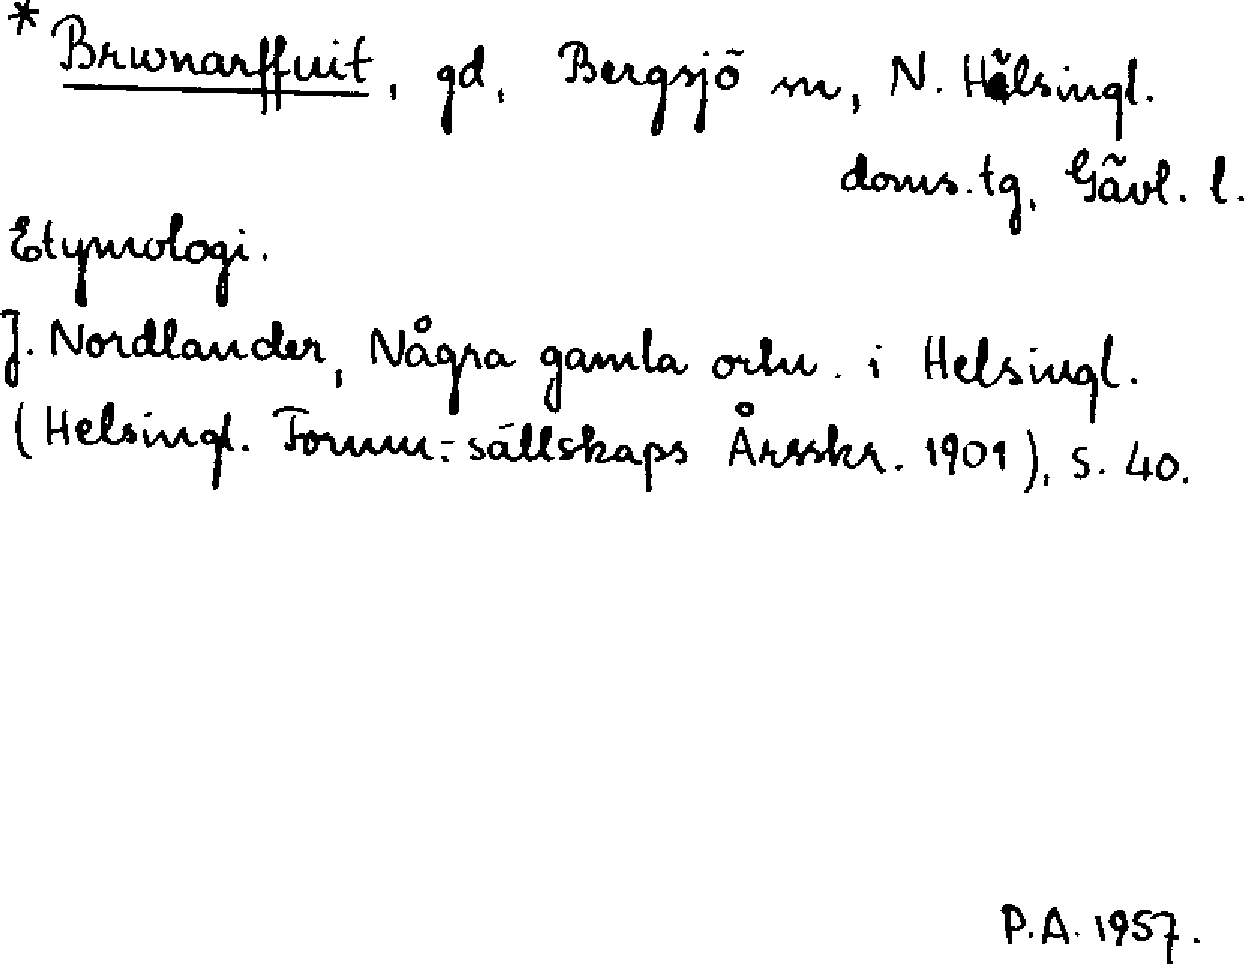 * Brwnarffuit, gd, Bergsjö sn, N. Hälsingl.
doms.tg, Gävl. l.
Etymologi.
J. Nordlander, Några gamla ortn. i Helsingl.
(Helsingl. Fornm.-sällskaps Årsskr. 1901), s. 40.
P.A. 1957.